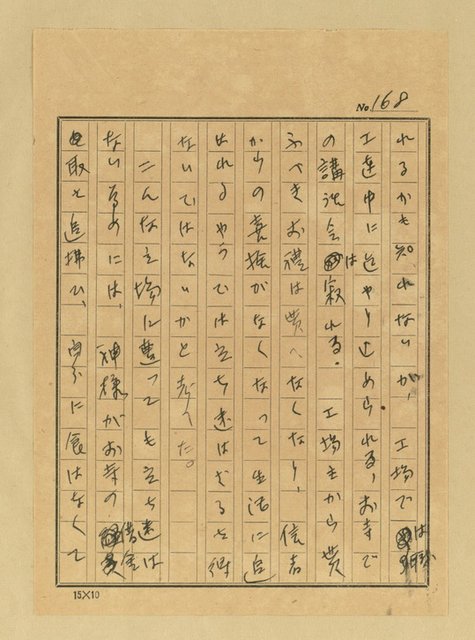 No. 168
れるかも知れないが、工場では職
工連中に遣やり込められる。お寺で
の講話会は寂れる。工場主から貰
ふべきお禮は貰へなくなり、信者
からの喜捨がなくなって生活に追
はれるやうでは立ち遅はざるを得
ないではないかと考へた。
こんな立場に遭っても立ち遅は
ない為めには、神様がお寺の借金
取を追拂ひ、自分に食はなくて
15×10